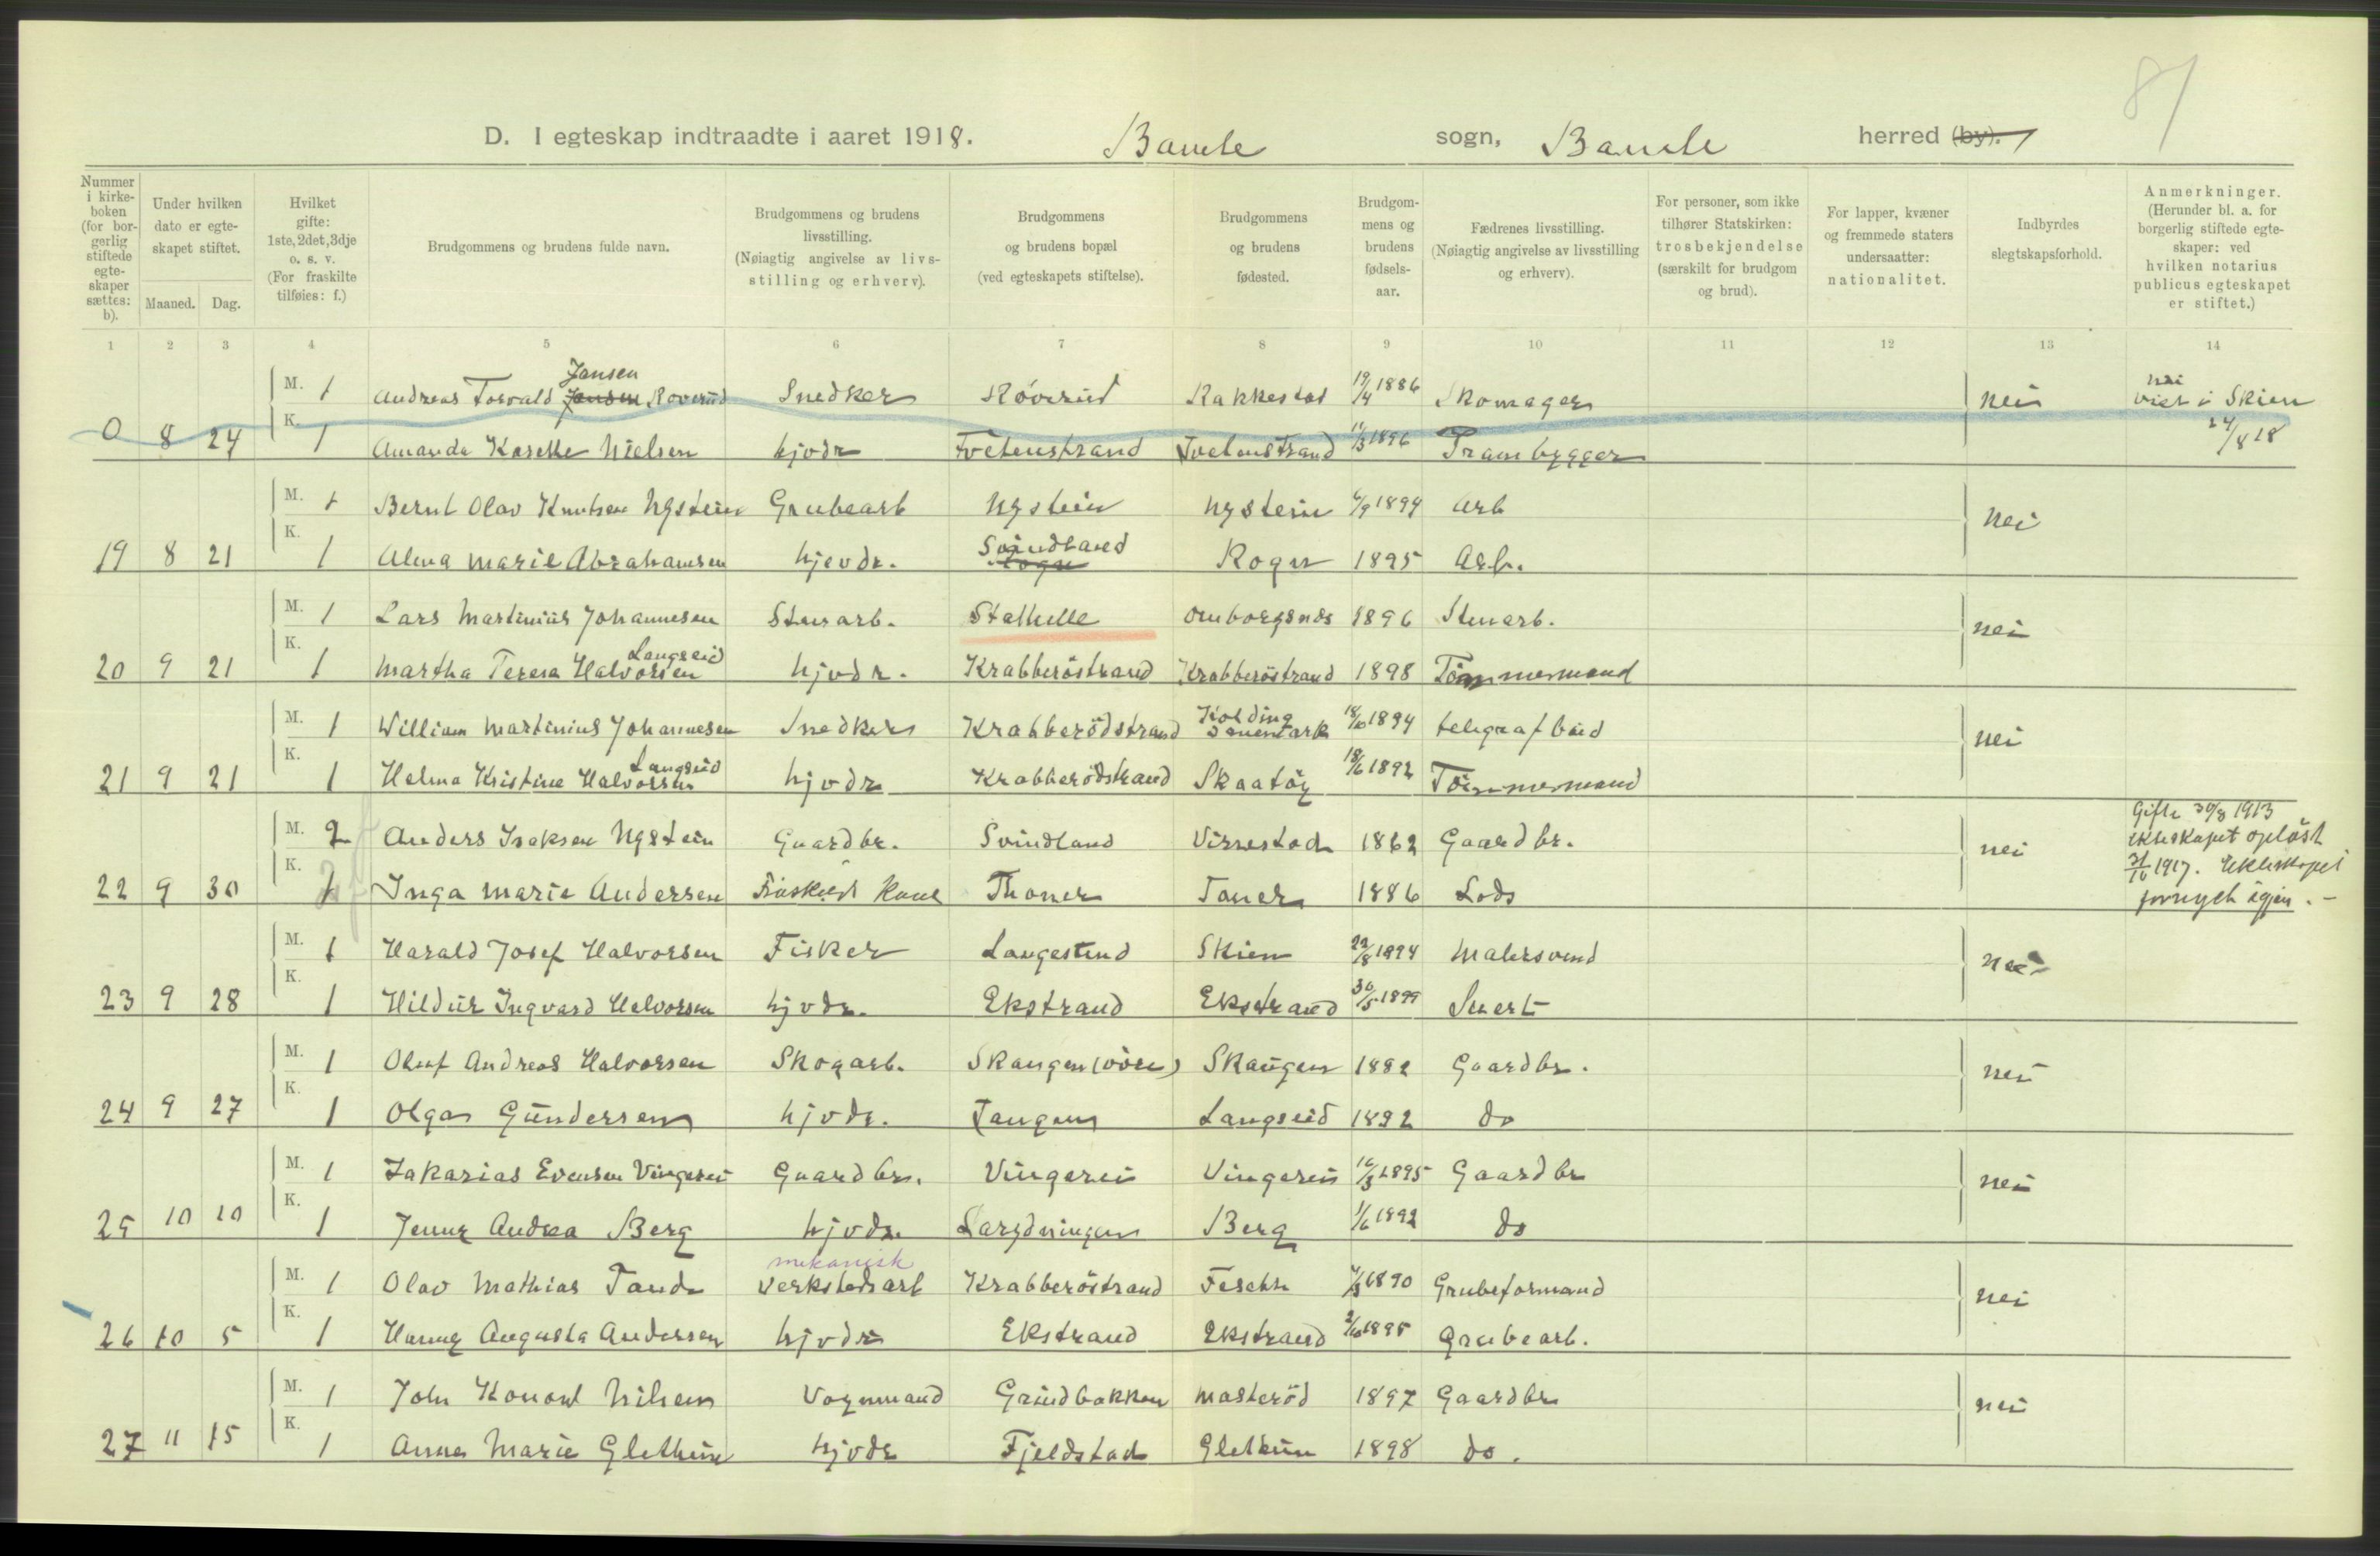 87
D. I egteskap indtraadte i aaret 1918. Bamle sogn, Bamle herred (by).
Nummer i kirkeboken (for borgerlig stiftede egteskaper sættes: b).
Under hvilken dato er egteskapet stiftet.
Maaned. Dag.
Hvilket gifte: 1ste, 2det, 3dje o. s. v. (For fraskilte tilføies: f.)
Brudgommens og brudens fulde navn.
Brudgommens og brudens livsstilling. (Nøiagtig angivelse av livsstilling og erhverv).
Brudgommens og brudens bopæl (ved egteskapets stiftelse).
Brudgommens og brudens fødested.
Brudgommens og brudens fødselsaar.
Fædrenes livsstilling. (Nøiagtig angivelse av livsstilling og erhverv).
For personer, som ikke tilhører Statskirken: trosbekjendelse (særskilt for brudgom og brud).
For lapper, kvæner og fremmede staters undersaatter: nationalitet.
Indbyrdes slegtskapsforhold.
Anmerkninger. (Herunder bl. a. for borgerlig stiftede egteskaper: ved hvilken notarius publicus egteskapet er stiftet.)
1 2 3 4 5 6 7 8 9 10 11 12 13 14
M. 1 Andreas Torvald Jansen Jonsen Roverud Snedker Röverud Rakkestad 19/4 1886 Skomager nei viet i Skien
0 8 24 K. 1 Amanda Kasette Nielsen hjvdr Tvetenstrand Tvetenstrand 11/3 1896 Prambygger 24/8 18
M. 1 Bernt Olav Knutsen Nystein Grubearb Nystein Nystein 6/9 1894 Arb nei
19 8 21 K. 1 Alma Marie Abrahamsen hjevdr. Svindland Rogn 1895 Arb.
M. 1 Lars Martinius Johannesen Stenarb. Stathelle Omborgsnes 1896 Stenarb. nei
20 9 21 K. 1 Martha Teresa Halvorsen Langseid hjvdr. Krabberöstrand Krabberöstrand 1898 Tömmermand
M. 1 William Martinius Johannesen Snedker Krabberödstrand Kolding Danemark 18/10 1894 telegrafbud nei
21 9 21 K. 1 Helma Kristine Halvorsen Langseid hjvdr Krabberödstrand Skaatöy 18/6 1892 Tömmermand
M. 2 Anders Isaksen Nystein Gaardbr. Svindland Virrestad 1862 Gaardbr. nei Gifte 30/8 1913 ekteskapet oplöst
22 9 30 K. Inga Marie Andersen Fraskilt Kone Thoner Toner 1886 Lods 21/10 1917. Ekteskapet fornyet igjen. –
M. 1 Harald Josef Halvorsen Fisker Langesund Skien 22/8 1894 Malersvend nei
23 9 28 K. 1 Hildur Ingvard Halvorsen hjvdr. Ekstrand Ekstrand 30/5 1899
M. 1 Oluf Andreas Halvorsen Skogarb. Skaugen (övre) Skaugen 1882 Gaardbr. nei
24 9 27 K. 1 Olga Gundersen hjvdr. Tangen Langseid 1892 do
M. 1 Zakarias Evensen Vingerei Gaardbr. Vingerei Vingerei 16/3 1895 Gaardbr nei
25 10 10 K. 1 Jenny Andrea Berg hjvdr. Berg 1/6 1892 do
M. 1 Olav Mathias Tande mekanisk Verkstedsarb Krabberöstrand 1890 Grubeformand nei
26 10 5 K. 1 Hanny Augusta Andersen hjvdr Ekstrand Ekstrand 2/10 1895 Grubearb.
M. 1 John Konow Nilsen Vognmand Grindbakken Masteröd 1897 Gaardbr nei
27 11 15 K. 1 Anna Marie Gletheim hjvdr Fjeldstad Gletheim 1898 do.